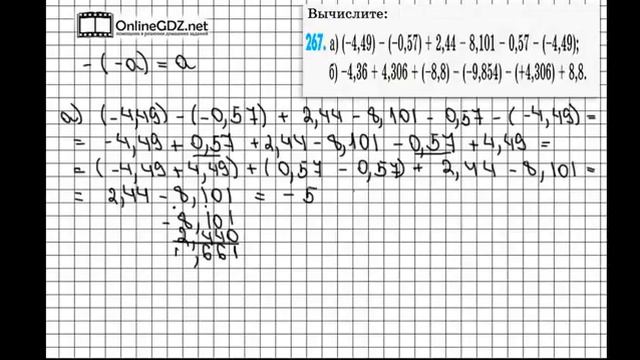 OnlineGDZ.net
помощник в решении домашних заданий
Вычислите:
267. а) (–4,49) – (–0,57) + 2,44 – 8,101 – 0,57 – (–4,49);
б) –4,36 + 4,306 + (–8,8) – (–9,854) – (+4,306) + 8,8.
- (-a) = a
а) (-4,49) - (-0,57) + 2,44 - 8,101 - 0,57 - (-4,49) =
= -4,49 + 0,57 + 2,44 - 8,101 - 0,57 + 4,49 =
= (-4,49 + 4,49) + (0,57 - 0,57) + 2,44 - 8,101 =
= 2,44 - 8,101 = - 5
- 8,101
2,440
,661